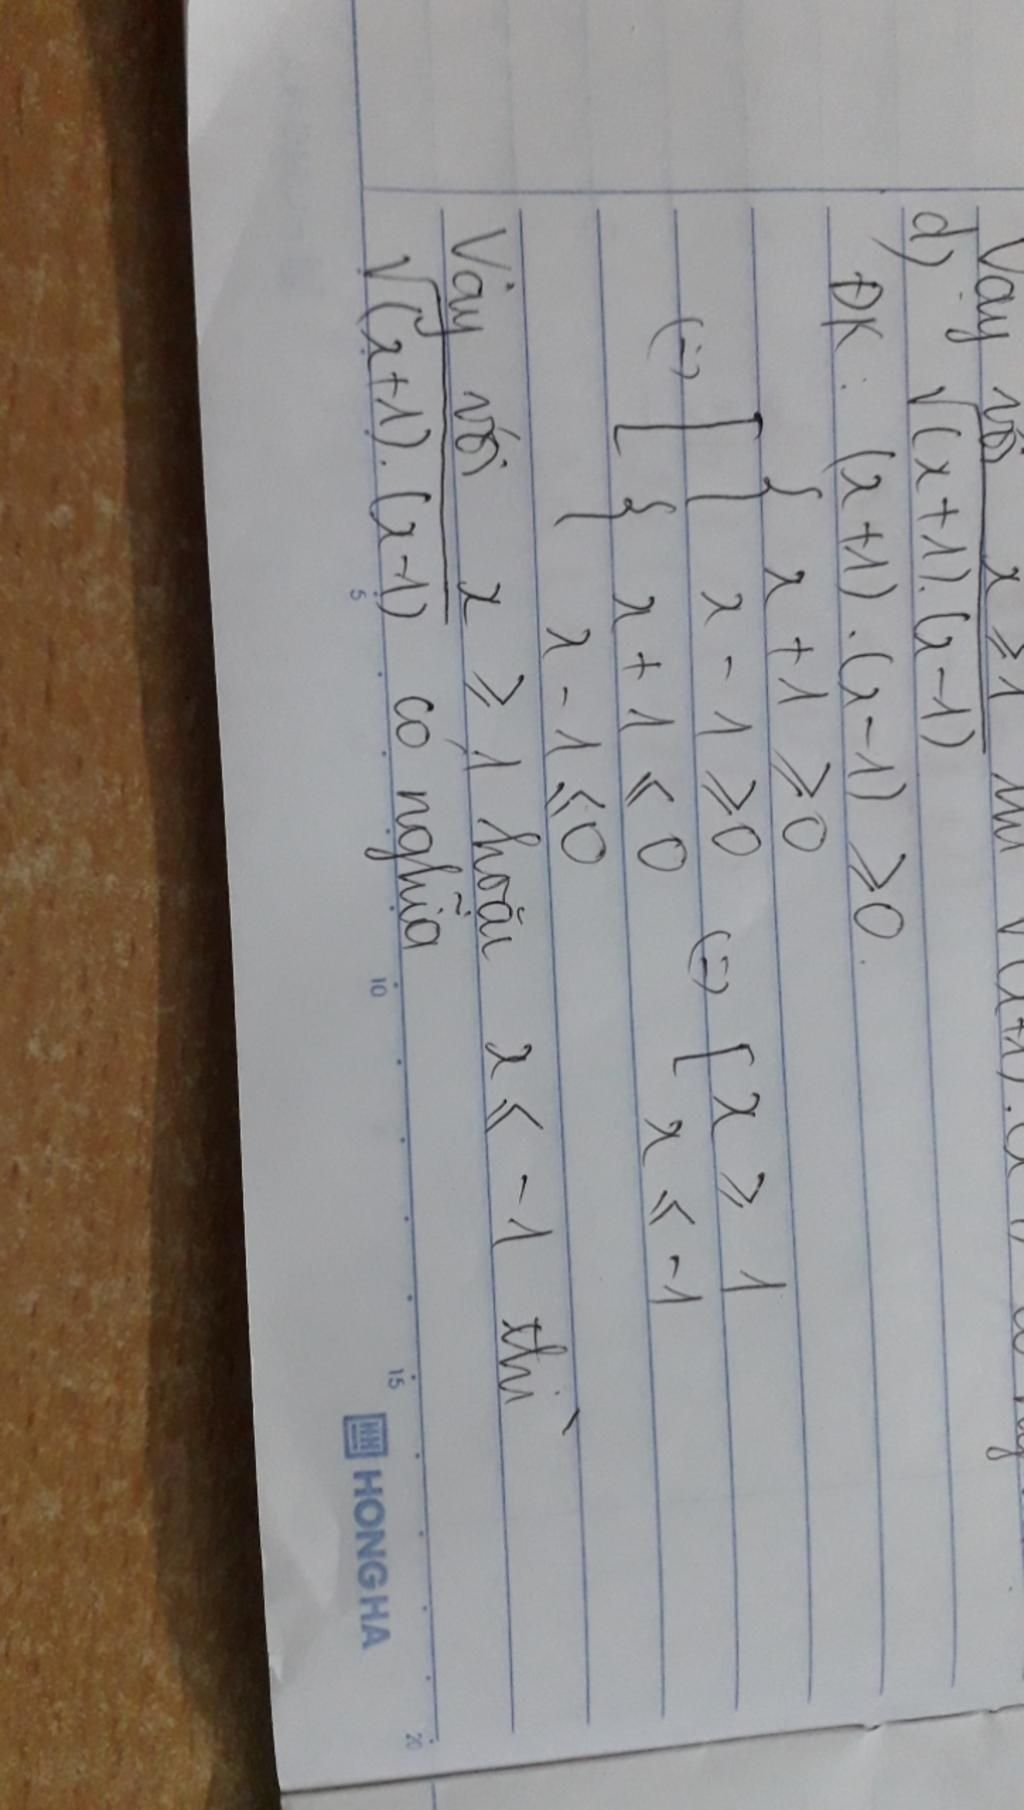 Vậy với x ≥ 1 thì √(x+1).(x
d) √(x+1).(x-1)
ĐK: (x+1).(x-1) ≥ 0.
{ x + 1 ≥ 0
(=) [ x - 1 ≥ 0 (=) [ x ≥ 1
{ x + 1 ≤ 0 x ≤ -1
x - 1 ≤ 0
Vậy với x ≥ 1 hoặc x ≤ -1 thì
√(x+1).(x-1) có nghĩa
5 10 15 20
HONG HA